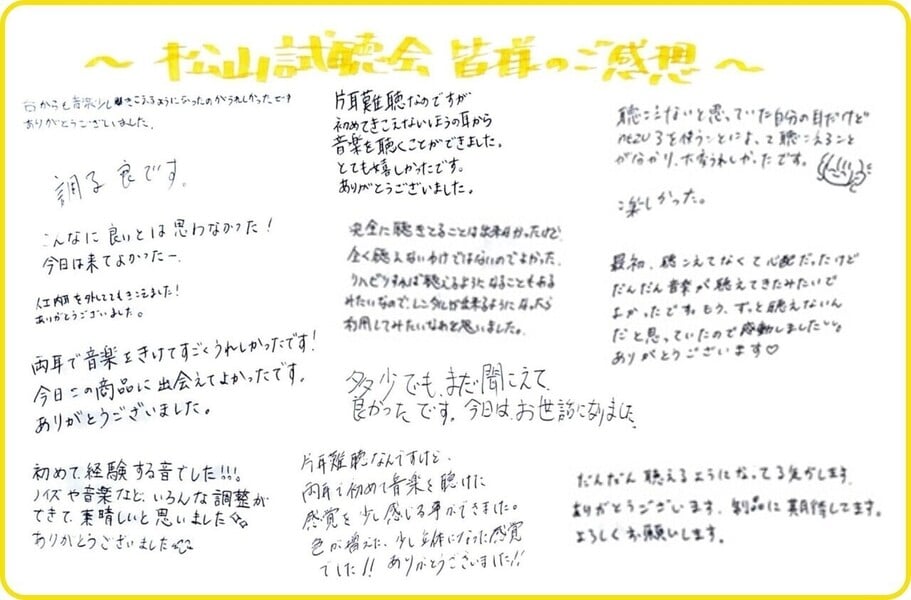 ~ 松山試聴会 皆様のご感想 ~
右からも音楽少しきこえるようになったのがうれしかったです
ありがとうございました。
調子良です。
こんなに良いとは思わなかった!
今日は来てよかったー。
仁内耳を外してもきこえました!
ありがとうございました。
両耳で音楽をきけてすごくうれしかったです!
今日この商品に出会えてよかったです。
ありがとうございました。
初めて経験する音でした!!!
ノイズや音楽など、いろんな調整が
できて、素晴しいと思いました
ありがとうございました
片耳難聴なのですが
初めてきこえないほうの耳から
音楽を聴くことができました。
とても嬉しかったです。
ありがとうございました。
完全に聴きとることは出来なかったけど
全く聴えないわけではないのでよかった。
リハビリすれば聴えるようになることもある
みたいなので、レンタルが出来るようになったら
利用してみたいなあと思いました。
多少でも、まだ聞こえて
良かったです。今日は、お世話になりました
片耳難聴なんですけど、
両耳で初めて音楽を聴けた
感覚を少し感じる事ができました。
色が増えた、少し立体になった感覚
でした!! ありがとうございました!!
聴こえないと思っていた自分の耳だけど
を使うことによって聴こえること
がわかり、大変うれしかったです。
楽しかった。
最初、聴こえてなくて心配だったけど
だんだん音楽が聴えてきたみたいで
よかったです。もう、ずっと聴えないん
だと思っていたので感動しました
ありがとうございます♡
だんだん聴えるようになってる気がします。
ありがとうございます。製品に期待してます。
よろしくお願いします。